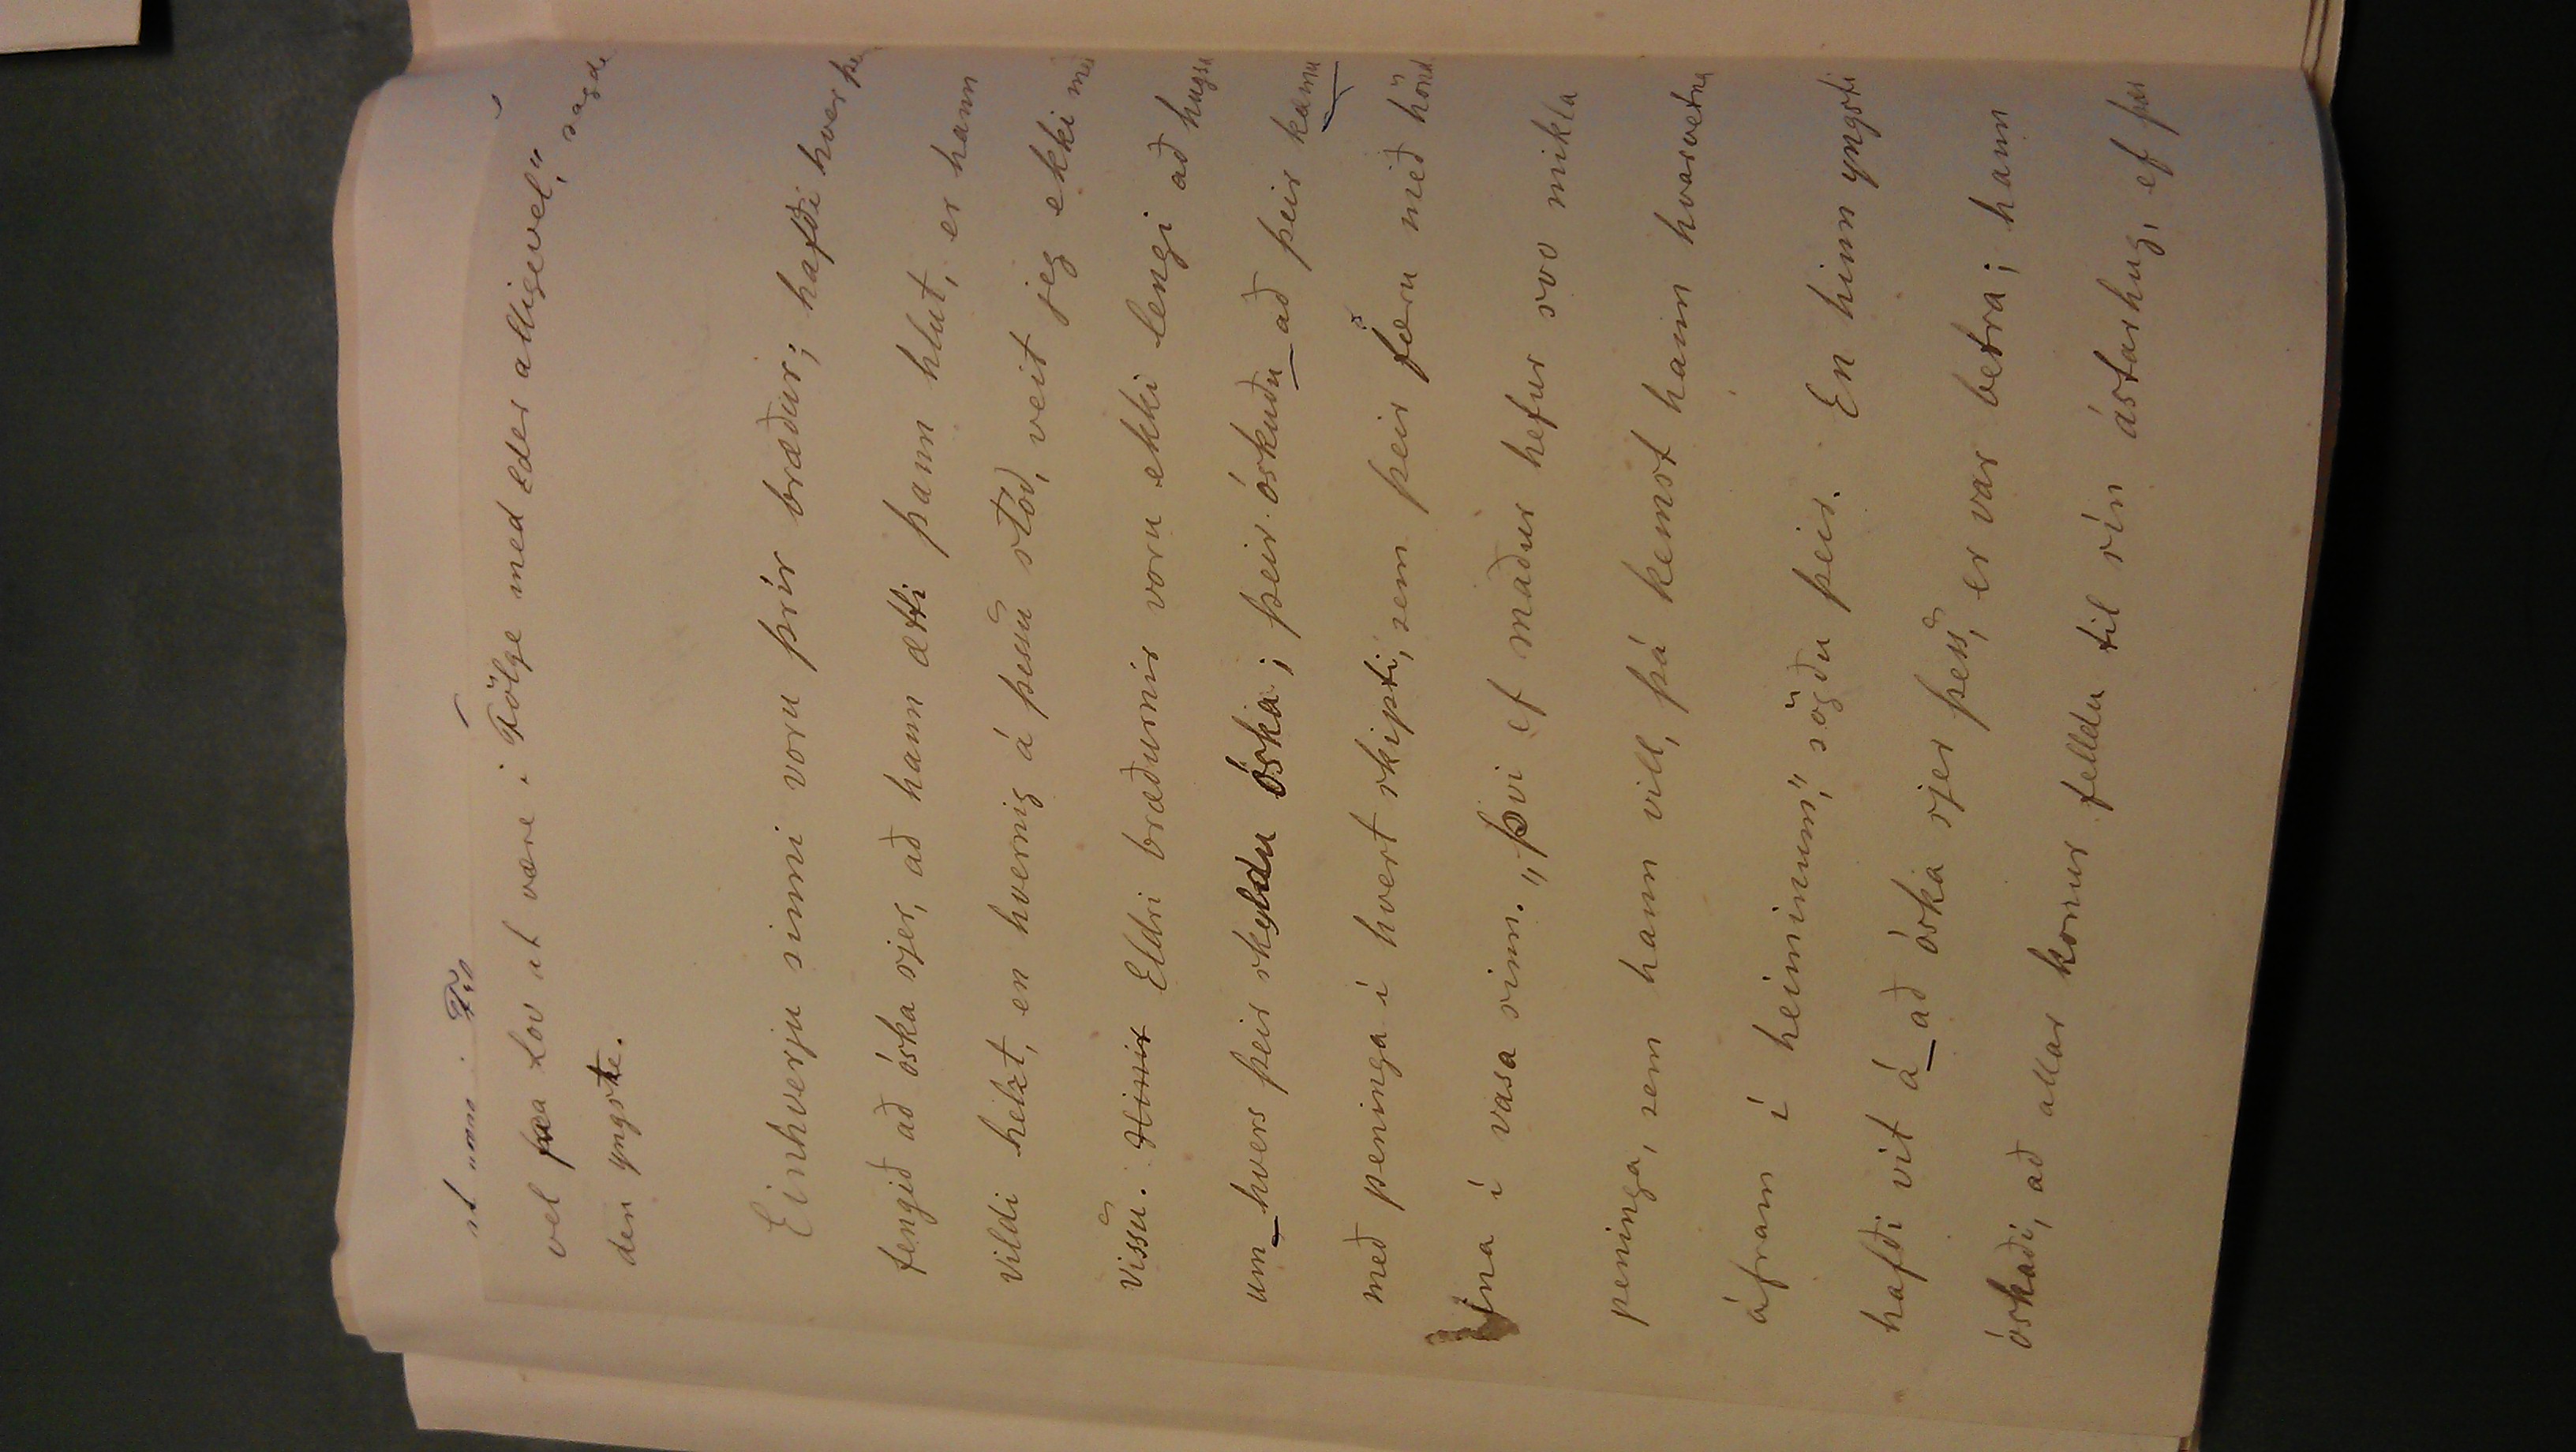 vel faa Lov at være i Følge med Eder alligevel," sagde
den yngste.
Einhverju sinni voru þrír bræður; hafði hver þe
fengið að óska sjer, að hann ætti þann hlut, er hann
vildi helzt, en hvernig á þessu stóð, veit jeg ekki me
vissu. Hinir Eldri bræðurnir voru ekki lengi að hugsa
um hvers þeir skyldu óska; þeir óskuðu að þeir kæmu
með peninga í hvert skipti, sem þeir færu með hönd
ina í vasa sinn. „Því ef maður hefur svo mikla
peninga, sem hann vill, þá kemst hann hvarvetna
áfram í heiminum," sögðu þeir. En hinn yngsti
hafði vit á að óska sjer þess, er var betra; hann
óskaði, að allar konur felldu til sín ástarhug, ef þær